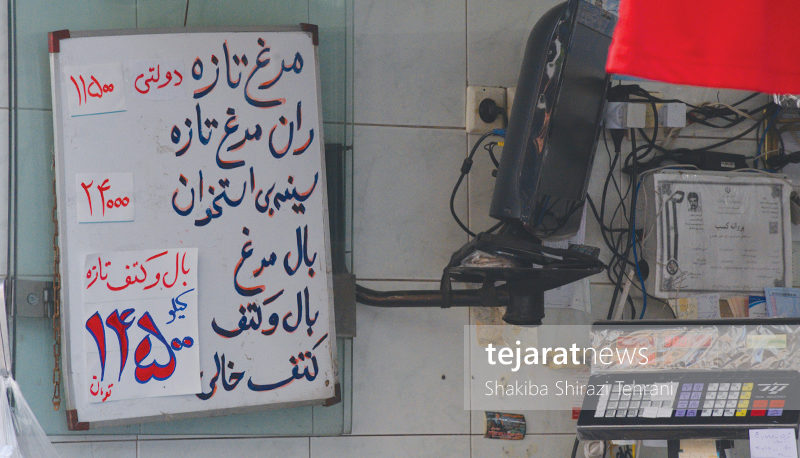 مرغ تازه دولتی ۱۱۵۰۰
ران مرغ تازه
سینه بی استخوان ۲۴۰۰۰
بال مرغ
بال و کتف
کتف خالی
بال و کتف تازه
کیلو
۱۴۵۰۰
تومان
پروانه کسب
tejaratnews
Shakiba Shirazi Tehrani